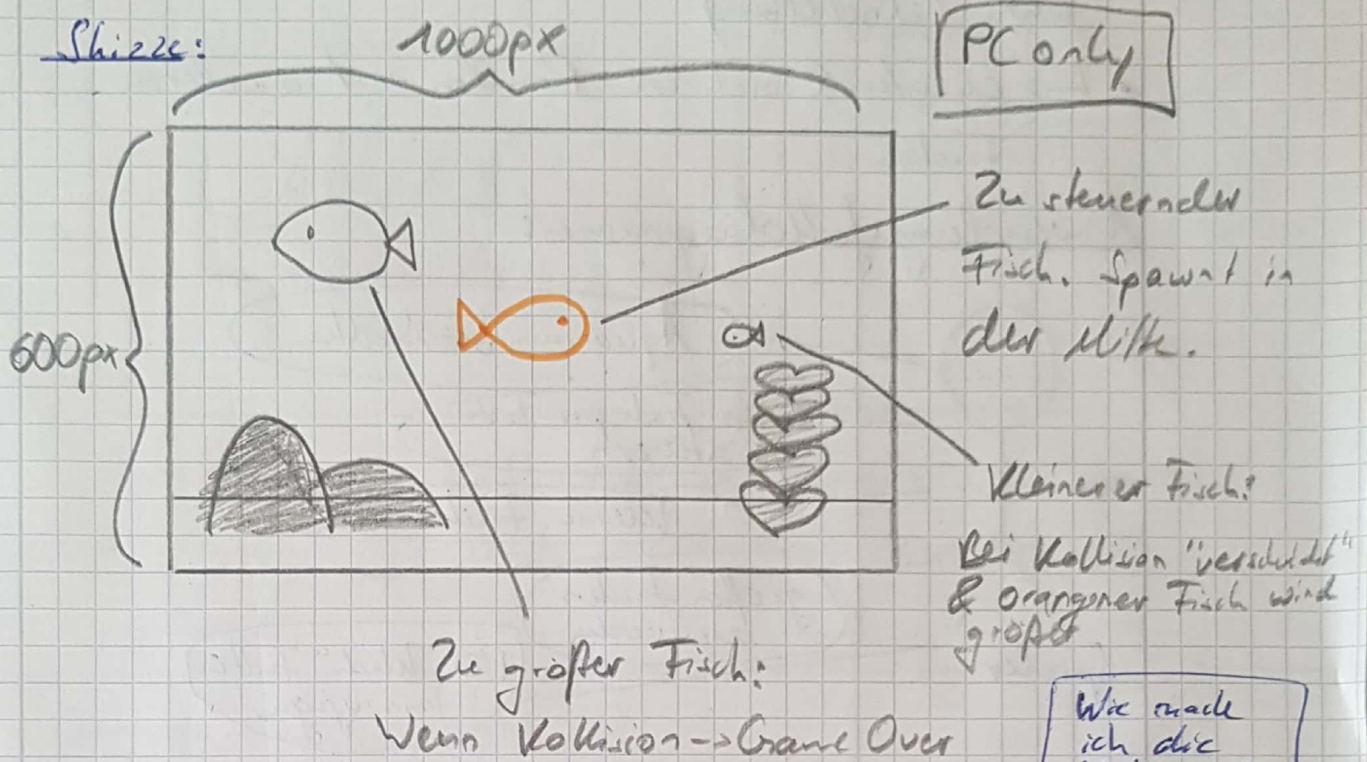 Skizze:
1000px
PC only
600px
Zu steuernder
Fisch. Spawnt in
der Mitte.
Kleinerer Fisch:
Bei Kollision "verschwindet"
& orangener Fisch wird
größer
Zu großer Fisch:
Wenn Kollision -> Game Over
Wie mache
ich die